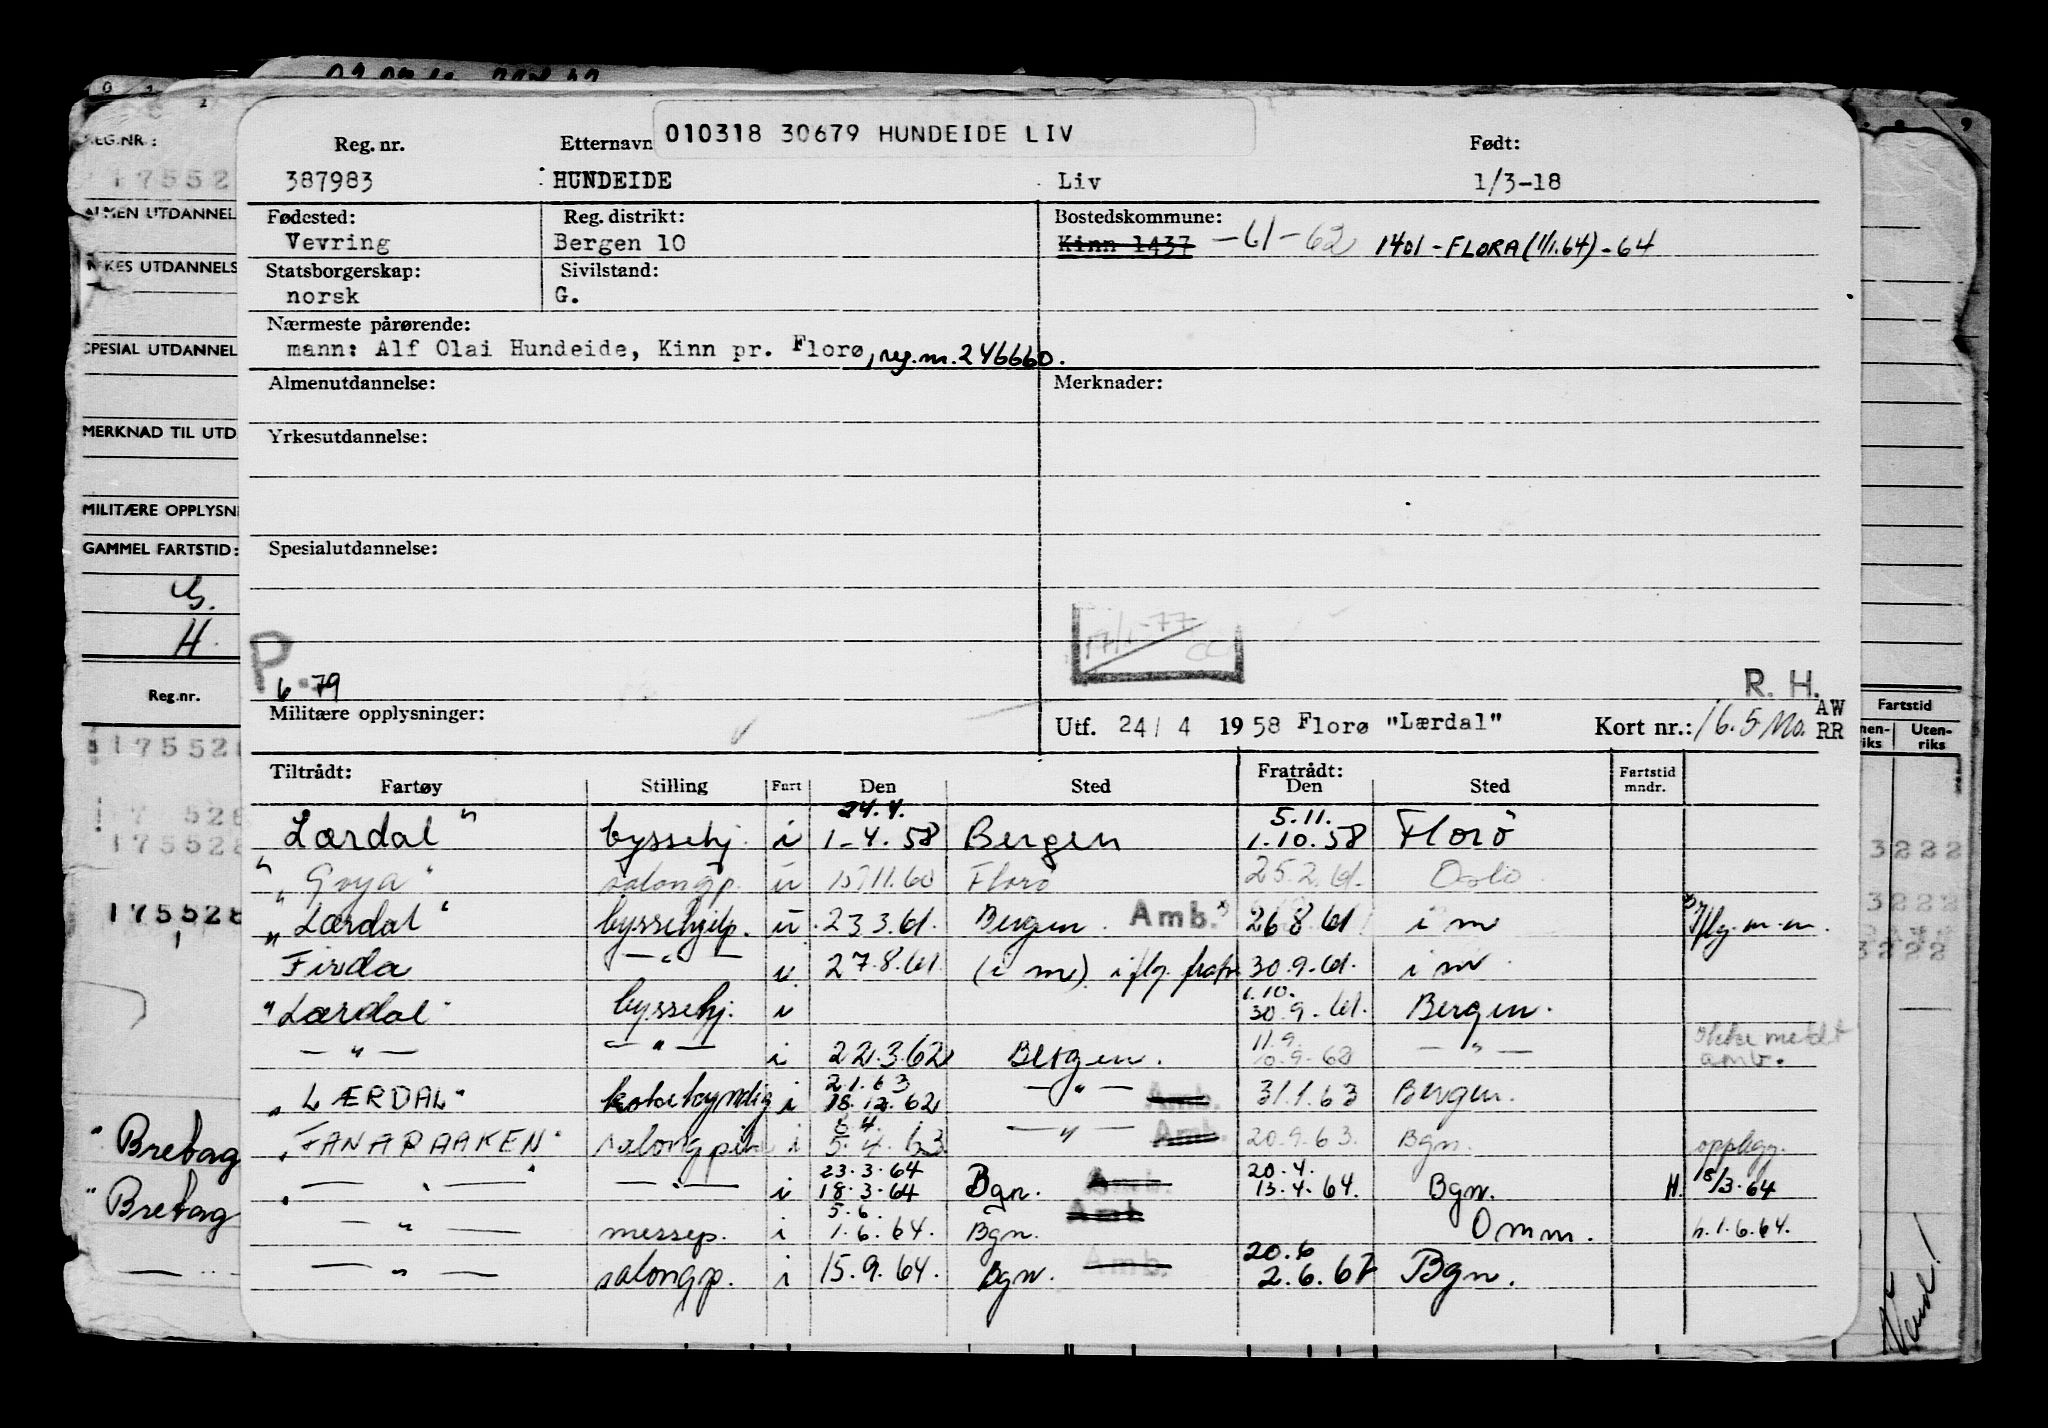 010318 30679 HUNDEIDE LIV
Reg. nr. Etternavn Født:
387983 HUNDEIDE Liv 1/3-18
Fødested: Reg. distrikt: Bostedskommune:
Vevring Bergen 10 Kinn 1437 -61-62 1401-FLORA (1/1.64)-64
Statsborgerskap: Sivilstand:
norsk G.
Nærmeste pårørende:
mann: Alf Olai Hundeide, Kinn pr. Florø, reg.nr. 246660.
Almenutdannelse: Merknader:
Yrkesutdannelse:
Spesialutdannelse:
17/1-77
P 6.79 R. H.
Militære opplysninger: Utf. 24/4 1958 Florø "Lærdal" Kort nr.: 16.5 Mo. AW RR
Tiltrådt: Fratrådt: Fartstid
Fartøy Stilling Fart Den Sted Den Sted mndr.
24.4. 5.11.
Lærdal" byssehj. i 1-4.58 Bergen 1.10.58 Florø
" Goya " salongp. u 11.60 Florø 25.2.61. Oslo
"Lærdal" byssehjelp. u 23 3.61. Bergen Amb. 26 8 61 i m
Firda —"— u. 27.8.61. (i m) iflg. fratr 30.9.61. i m
1.10.
"Lærdal" byssehj. i 30.9-61. Bergen.
11.9.
—"— —"— i 22.3.62 Bergen. 10.9-62 —"— ikke meldt amb.
2.1.63
"LÆRDAL" kokekyndig i 18.12.62 —"— Amb. 31.1.63 Bergen.
"FANARAAKEN" i 5.4.63 —"— Amb. 20.9.63. Bgn. opplegg.
23.3.64 20.4.
—"— —"— i 18.3.64 Bgn. Amb. 13.4.64. Bgn. H. 18/3-64
5.6.
—"— messep. i 1.6.64. Bgn. Amb Omm. h.1.6.64.
20.6
—"— salongp. i 15.9.64. Bgn. Amb. 2.6.67 Bgn.
REG.NR.:
17552
ALMEN UTDANNEL
YRKES UTDANNELS
SPESIAL UTDANNEL
MERKNAD TIL UTD
MILITÆRE OPPLYSN
GAMMEL FARTSTID:
G.
H.
Reg.nr.
175528
175528
175528
175528
"Bretag
"Bretag
Fartstid
Innen-riks Uten-riks
3222
3222
3222